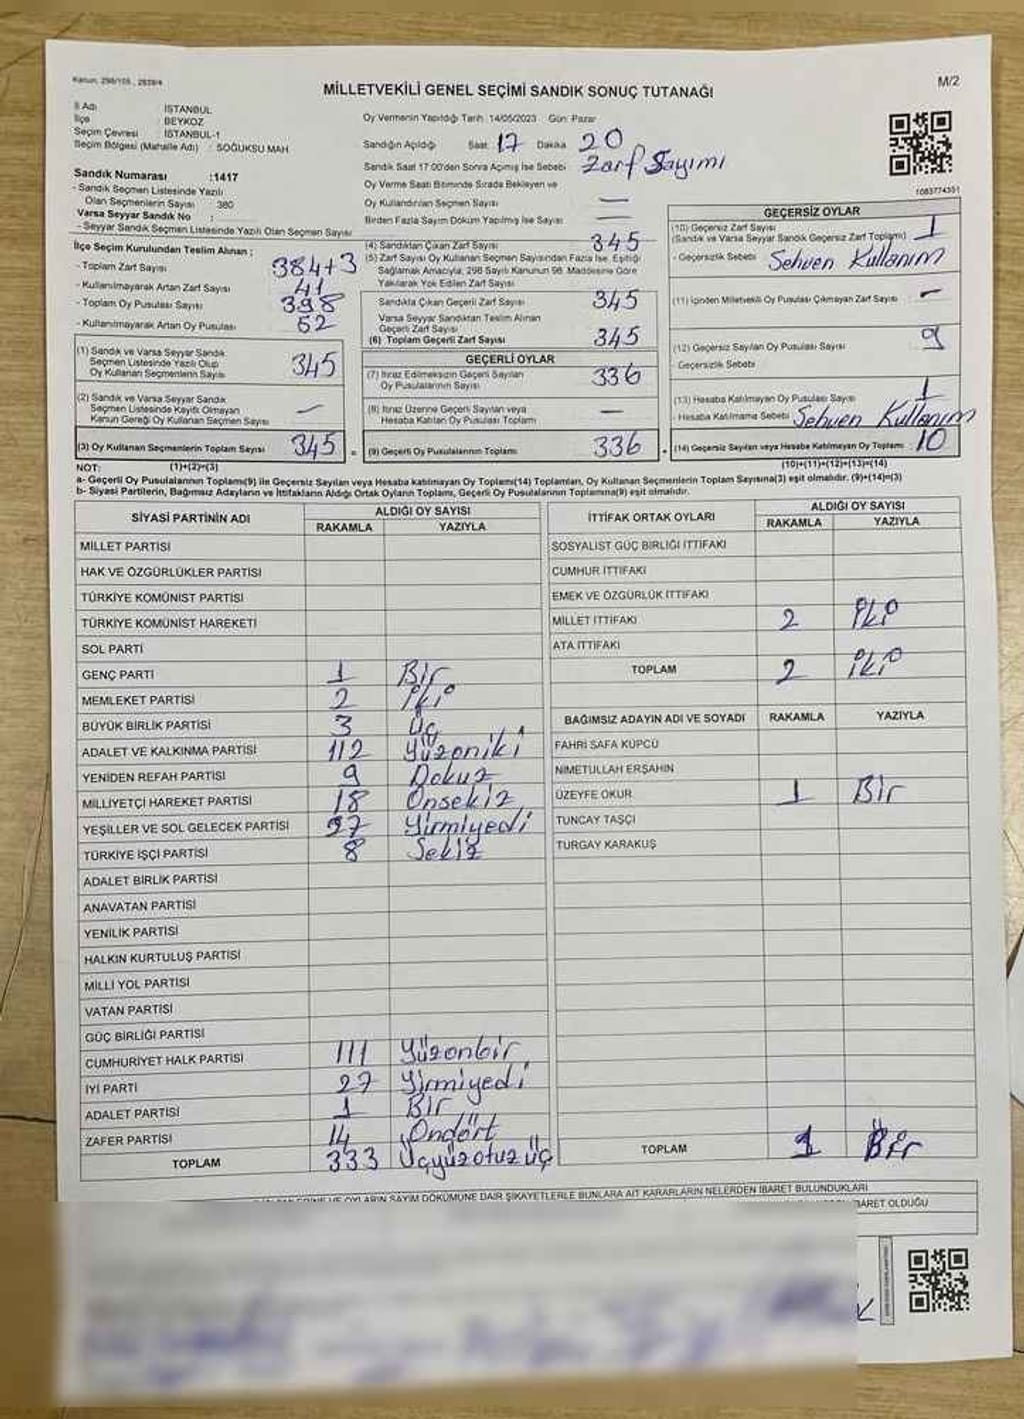 Kanun, 298/105 , 2839/4
M/2
MİLLETVEKİLİ GENEL SEÇİMİ SANDIK SONUÇ TUTANAĞI
İl Adı : İSTANBUL
İlçe : BEYKOZ
Seçim Çevresi : İSTANBUL-1
Seçim Bölgesi (Mahalle Adı) : SOĞUKSU MAH
Sandık Numarası :1417
- Sandık Seçmen Listesinde Yazılı
Olan Seçmenlerin Sayısı 380
Varsa Seyyar Sandık No :
- Seyyar Sandık Seçmen Listesinde Yazılı Olan Seçmen Sayısı
İlçe Seçim Kurulundan Teslim Alınan :
- Toplam Zarf Sayısı 384+3
- Kullanılmayarak Artan Zarf Sayısı 41
- Toplam Oy Pusulası Sayısı 398
- Kullanılmayarak Artan Oy Pusulası 52
(1) Sandık ve Varsa Seyyar Sandık
Seçmen Listesinde Yazılı Olup
Oy Kullanan Seçmenlerin Sayısı 345
(2) Sandık ve Varsa Seyyar Sandık
Seçmen Listesinde Kayıtlı Olmayan
Kanun Gereği Oy Kullanan Seçmen Sayısı —
(3) Oy Kullanan Seçmenlerin Toplam Sayısı 345
(1)+(2)=(3)
Oy Vermenin Yapıldığı Tarih: 14/05/2023 Gün: Pazar
Sandığın Açıldığı Saat: 17 Dakika 20
Sandık Saat 17:00'den Sonra Açılmış İse Sebebi Zarf Sayımı
Oy Verme Saati Bitiminde Sırada Bekleyen ve
Oy Kullandırılan Seçmen Sayısı —
Birden Fazla Sayım Döküm Yapılmış İse Sayısı —
(4) Sandıktan Çıkan Zarf Sayısı 345
(5) Zarf Sayısı Oy Kullanan Seçmen Sayısından Fazla İse, Eşitliği
Sağlamak Amacıyla, 298 Sayılı Kanunun 98. Maddesine Göre
Yakılarak Yok Edilen Zarf Sayısı
Sandıkta Çıkan Geçerli Zarf Sayısı 345
Varsa Seyyar Sandıktan Teslim Alınan
Geçerli Zarf Sayısı
(6) Toplam Geçerli Zarf Sayısı 345
GEÇERLİ OYLAR
(7) İtiraz Edilmeksizin Geçerli Sayılan
Oy Pusulalarının Sayısı 336
(8) İtiraz Üzerine Geçerli Sayılan veya
Hesaba Katılan Oy Pusulası Toplamı —
(9) Geçerli Oy Pusulalarının Toplamı 336
1083774351
GEÇERSİZ OYLAR
(10) Geçersiz Zarf Sayısı
(Sandık ve Varsa Seyyar Sandık Geçersiz Zarf Toplamı) 1
- Geçersizlik Sebebi Sehven Kullanım
(11) İçinden Milletvekili Oy Pusulası Çıkmayan Zarf Sayısı —
(12) Geçersiz Sayılan Oy Pusulası Sayısı 9
- Geçersizlik Sebebi
(13) Hesaba Katılmayan Oy Pusulası Sayısı 1
- Hesaba Katılmama Sebebi Sehven Kullanım
(14) Geçersiz Sayılan veya Hesaba Katılmayan Oy Toplamı 10
(10)+(11)+(12)+(13)=(14)
NOT:
a- Geçerli Oy Pusulasının Toplamı(9) ile Geçersiz Sayılan veya Hesaba katılmayan Oy Toplamı(14) Toplamları, Oy Kullanan Seçmenlerin Toplam Sayısına(3) eşit olmalıdır. (9)+(14)=(3)
b- Siyasi Partilerin, Bağımsız Adayların ve İttifakların Aldığı Ortak Oyların Toplamı, Geçerli Oy Pusulasının Toplamına(9) eşit olmalıdır.
SİYASİ PARTİNİN ADI ALDIĞI OY SAYISI
RAKAMLA YAZIYLA
MİLLET PARTİSİ
HAK VE ÖZGÜRLÜKLER PARTİSİ
TÜRKİYE KOMÜNİST PARTİSİ
TÜRKİYE KOMÜNİST HAREKETİ
SOL PARTİ
GENÇ PARTİ 1 Bir
MEMLEKET PARTİSİ 2 İki
BÜYÜK BİRLİK PARTİSİ 3 Üç
ADALET VE KALKINMA PARTİSİ 112 Yüzoniki
YENİDEN REFAH PARTİSİ 9 Dokuz
MİLLİYETÇİ HAREKET PARTİSİ 18 Onsekiz
YEŞİLLER VE SOL GELECEK PARTİSİ 27 Yirmiyedi
TÜRKİYE İŞÇİ PARTİSİ 8 Sekiz
ADALET BİRLİK PARTİSİ
ANAVATAN PARTİSİ
YENİLİK PARTİSİ
HALKIN KURTULUŞ PARTİSİ
MİLLİ YOL PARTİSİ
VATAN PARTİSİ
GÜÇ BİRLİĞİ PARTİSİ
CUMHURİYET HALK PARTİSİ 111 Yüzonbir
İYİ PARTİ 27 Yirmiyedi
ADALET PARTİSİ 1 Bir
ZAFER PARTİSİ 14 Ondört
TOPLAM 333 Üçyüzotuzüç
İTTİFAK ORTAK OYLARI ALDIĞI OY SAYISI
RAKAMLA YAZIYLA
SOSYALİST GÜÇ BİRLİĞİ İTTİFAKI
CUMHUR İTTİFAKI
EMEK VE ÖZGÜRLÜK İTTİFAKI
MİLLET İTTİFAKI 2 İki
ATA İTTİFAKI
TOPLAM 2 İki
BAĞIMSIZ ADAYIN ADI VE SOYADI RAKAMLA YAZIYLA
FAHRİ SAFA KÜPCÜ
NİMETULLAH ERŞAHİN
ÜZEYFE OKUR 1 Bir
TUNCAY TAŞÇI
TURGAY KARAKUŞ
TOPLAM 1 Bir
VE OYLARIN SAYIM DÖKÜMÜNE DAİR ŞİKAYETLERLE BUNLARA AİT KARARLARIN NELERDEN İBARET BULUNDUKLARI
İBARET OLDUĞU